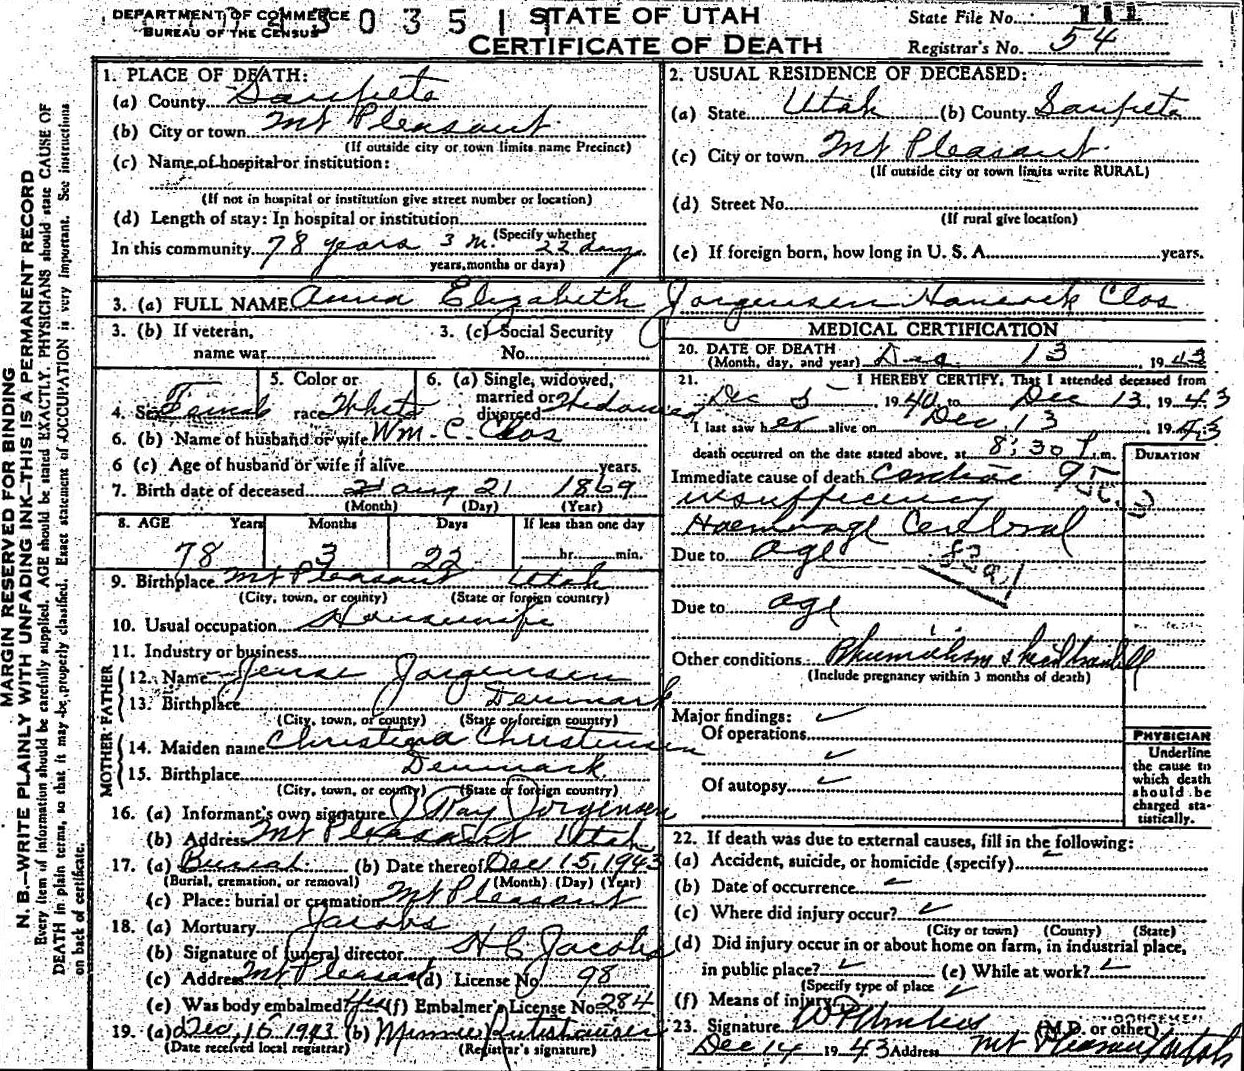 DEPARTMENT OF COMMERCE
BUREAU OF THE CENSUS
3 0 3 5 1
STATE OF UTAH
CERTIFICATE OF DEATH
State File No. 111
Registrar's No. 54
MARGIN RESERVED FOR BINDING
N. B.—WRITE PLAINLY WITH UNFADING INK—THIS IS A PERMANENT RECORD
Every item of information should be carefully supplied. AGE should be stated EXACTLY. PHYSICIANS should state CAUSE OF
DEATH in plain terms, so that it may be properly classified. Exact statement of OCCUPATION is very important. See instructions
on back of certificate.
1. PLACE OF DEATH:
(a) County Sanpete
(b) City or town Mt Pleasant
(If outside city or town limits name Precinct)
(c) Name of hospital or institution:
(If not in hospital or institution give street number or location)
(d) Length of stay: In hospital or institution
(Specify whether
In this community 78 years 3 m. 22 days
years, months or days)
2. USUAL RESIDENCE OF DECEASED:
(a) State Utah (b) County Sanpete
(c) City or town Mt Pleasant
(If outside city or town limits write RURAL)
(d) Street No.
(If rural give location)
(e) If foreign born, how long in U. S. A. years.
3. (a) FULL NAME Anna Elizabeth Jorgensen Clos
3. (b) If veteran,
name war
3. (c) Social Security
No.
4. Sex Female
5. Color or
race White
6. (a) Single, widowed,
married or
divorced Widowed
6. (b) Name of husband or wife Wm. C. Clos
6 (c) Age of husband or wife if alive years.
7. Birth date of deceased Aug 21 1869
(Month) (Day) (Year)
8. AGE Years Months Days If less than one day
78 3 22 hr. min.
9. Birthplace Mt Pleasant Utah
(City, town, or county) (State or foreign country)
10. Usual occupation Housewife
11. Industry or business
FATHER
12. Name Jense Jorgensen
13. Birthplace Denmark
(City, town, or county) (State or foreign country)
MOTHER
14. Maiden name Christena Christensen
15. Birthplace Denmark
(City, town, or county) (State or foreign country)
16. (a) Informant's own signature J Ray Jorgensen
(b) Address Mt Pleasant Utah
17. (a) Burial (b) Date thereof Dec 15, 1943
(Burial, cremation, or removal) (Month) (Day) (Year)
(c) Place: burial or cremation Mt Pleasant
18. (a) Mortuary Jacobs
(b) Signature of funeral director H C Jacobs
(c) Address Mt Pleasant (d) License No. 98
(e) Was body embalmed Yes (f) Embalmer's License No. 284
19. (a) Dec, 16 1943 (b) Minnie
(Date received local registrar) (Registrar's signature)
MEDICAL CERTIFICATION
20. DATE OF DEATH
(Month, day, and year) Dec 13 1943
21. I HEREBY CERTIFY, That I attended deceased from
Dec 5 1940 to Dec 13, 1943
I last saw her alive on Dec, 13 1943
death occurred on the date stated above, at 8:30 P.m.
DURATION
Immediate cause of death Cardiac
insufficiency
Cerebral
Due to age
83a1
Due to age
Other conditions
(Include pregnancy within 3 months of death)
Major findings: ✓
Of operations ✓
Of autopsy ✓
PHYSICIAN
Underline
the cause to
which death
should be
charged sta-
tistically.
22. If death was due to external causes, fill in the following:
(a) Accident, suicide, or homicide (specify) ✓
(b) Date of occurrence ✓
(c) Where did injury occur? ✓
(City or town) (County) (State)
(d) Did injury occur in or about home on farm, in industrial place,
in public place? ✓ (e) While at work? ✓
(Specify type of place
(f) Means of injury ✓
23. Signature (M.D. or other)
Dec 14 1943 Address Mt Pleasant Utah